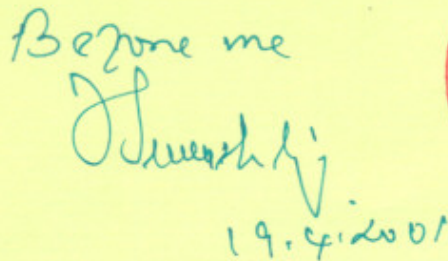 Before me
19.4.2001